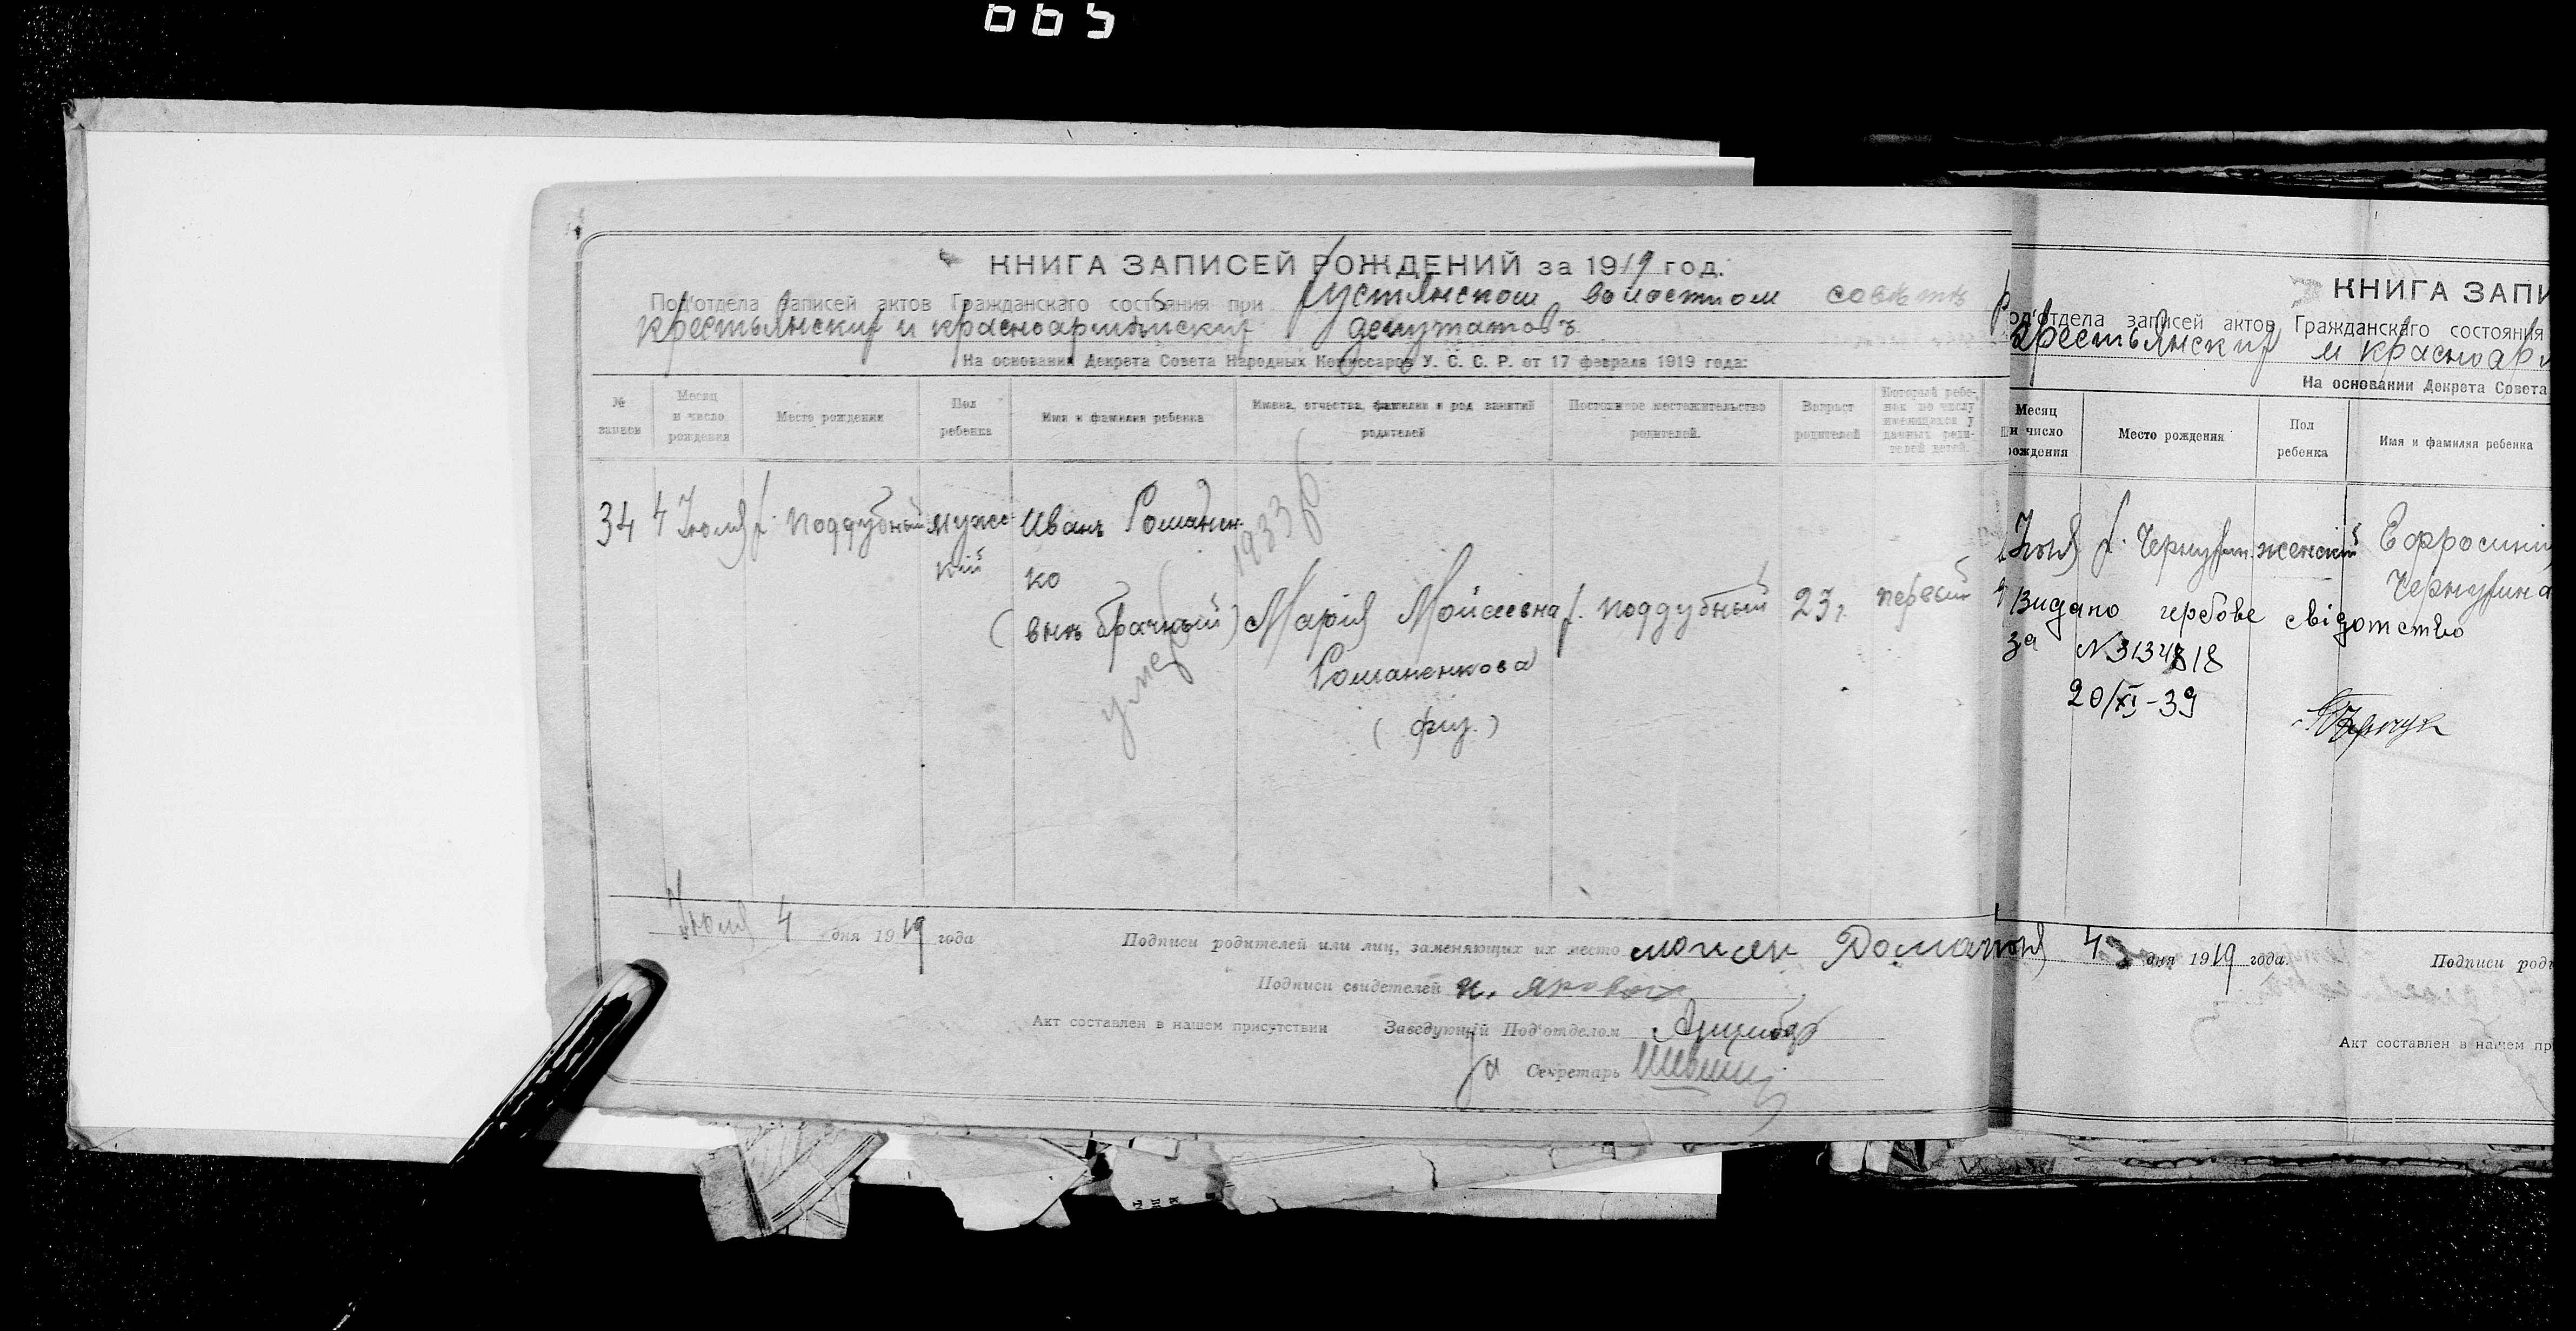 665
КНИГА ЗАПИСЕЙ РОЖДЕНИЙ за 1919 год.
Под'отдела записей актов Гражданскаго состояния при Густынском волостном совѣтѣ
крестьянских и красноармейских депутатовъ
На основании Декрета Совета Народных Комиссаров У. С. С. Р. от 17 февраля 1919 года:
№ записи
Месяц и число рождения
Место рождения
Пол ребенка
Имя и фамилия ребенка
Имена, отчества, фамилии и род занятий родителей
Постоянное местожительство родителей.
Возраст родителей
Который ребенок по числу имеющихся у данных родителей детей.
34 4 Июля х. Поддубный мужс- Иванъ Романен-
кій ко
(внѣбрачный) Марія Мойсеевна х. Поддубный 23 г. первый
Романенкова
умер 1933 р
Июля 4 дня 1919 года
Подписи родителей или лиц, заменяющих их место мойсей Роман
Подписи свидетелей
Акт составлен в нашем присутствии Заведующий Под'отделом
За Секретарь
КНИГА ЗАПИ
Под'отдела записей актов Гражданскаго состояния
крестьянских и красноар
На основании Декрета Совета
Месяц и число рождения
Место рождения
Пол ребенка
Имя и фамилия ребенка
женский Ефросиния
Чернухина
Видано гербове свідотство
за №
20/XI-39
4 дня 1919 года.
Подписи род
Акт составлен в нашем пр